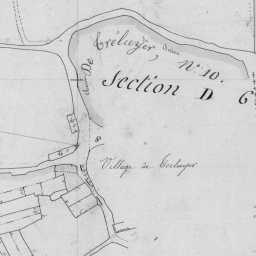 De Créluyer, N° 10.
Section D 6
Village de Creluyer